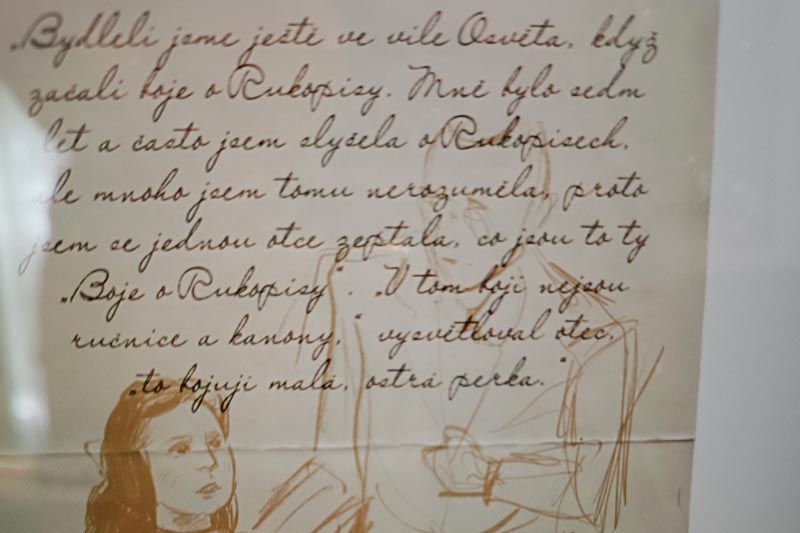 „Bydleli jsme ještě ve vile Osvěta, když
začali boje o Rukopisy. Mně bylo sedm
let a často jsem slyšela o Rukopisech,
ale mnoho jsem tomu nerozuměla, proto
jsem se jednou otce zeptala, co jsou to ty
„Boje o Rukopisy“. „V tom boji nejsou
ručnice a kanony,“ vysvětloval otec,
„to bojují malá, ostrá pérka.“